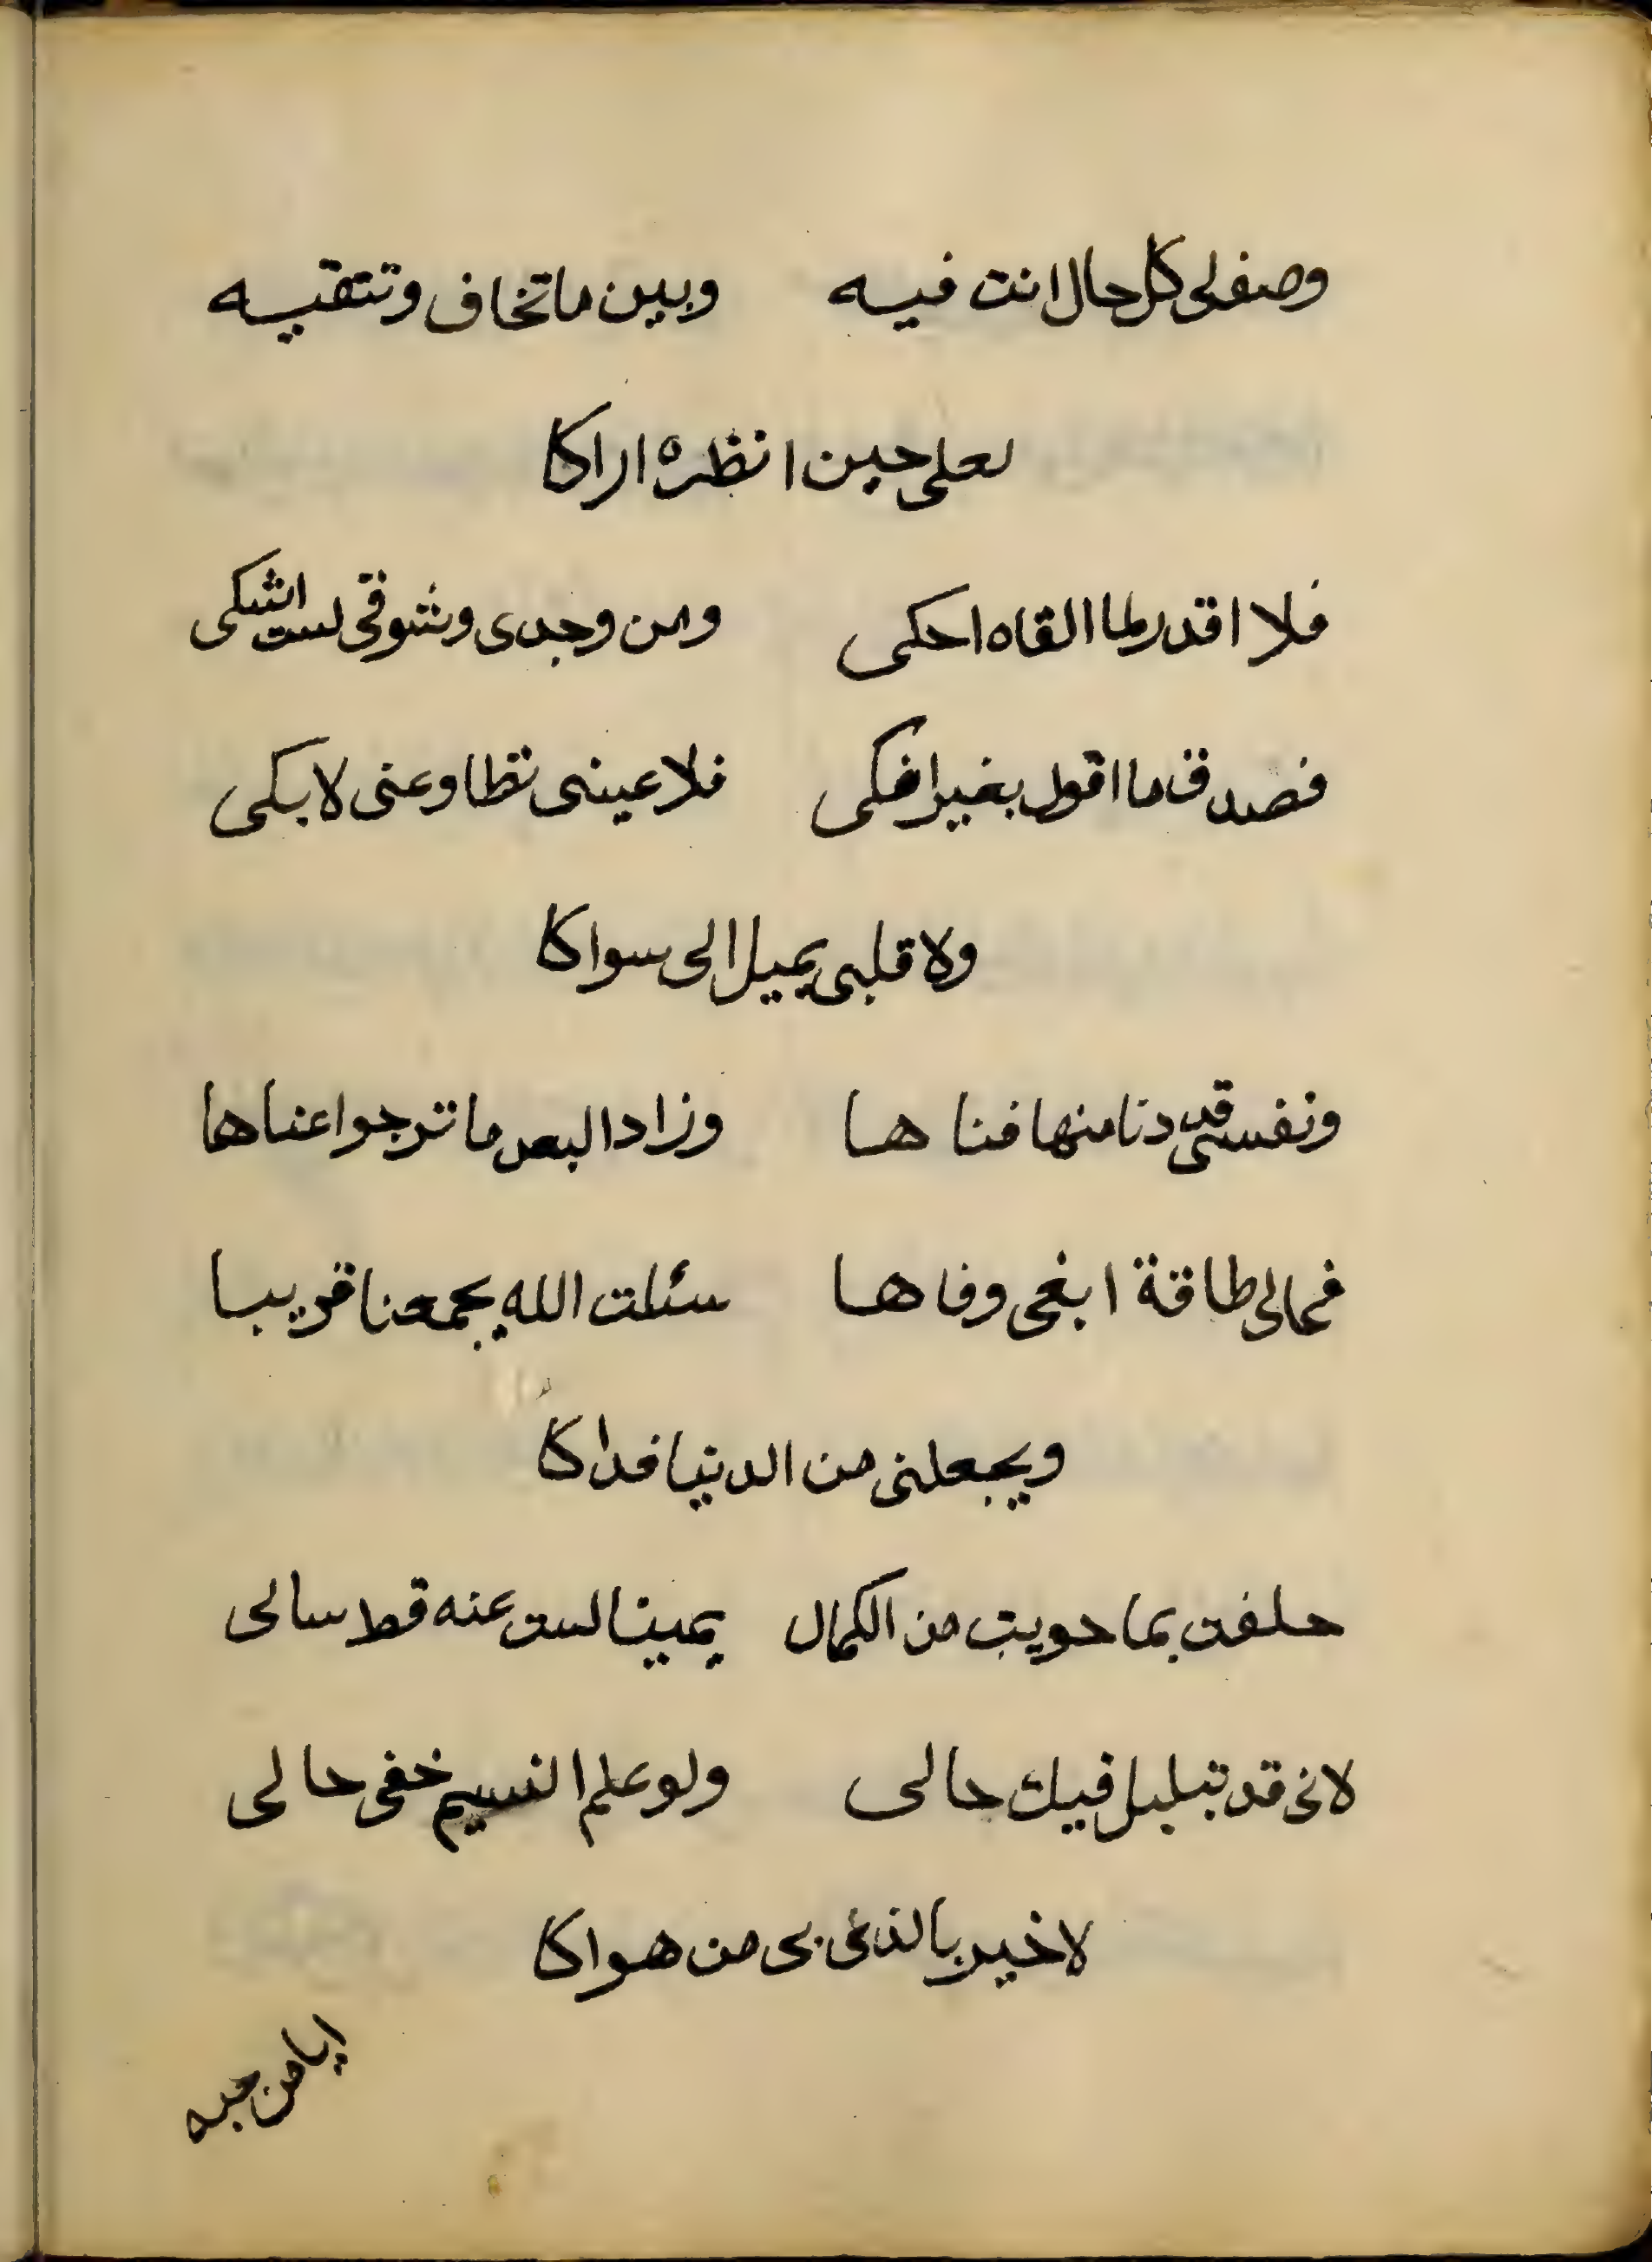 وصفلى كل حال انت فيه وبين ماتخاف وتتقيه
لعلى حين انظره اراكا
فلا اقدر لما القاه احكى ومن وجدى وشوقى لست اشكى
فصدق ما اقول بغير افكى فلا عينى تظا وعنى لابكى
ولا قلبى يميل الى سواكا
ونفسى قد دنا منها فناها وزاد البعد ما ترجوا عناها
فمالى طاقة ابغى وفاها سئلت الله يجمعنا قريبا
ويجعلنى من الدنيا فداكا
حلفت بما حويت من الكمال يمينا لست عنه قط سالى
لانى قد تبلبل فيك حالى ولو علم النسيم خفى حالى
لاخبر بالذى بى من هواكا
ايا من حبه